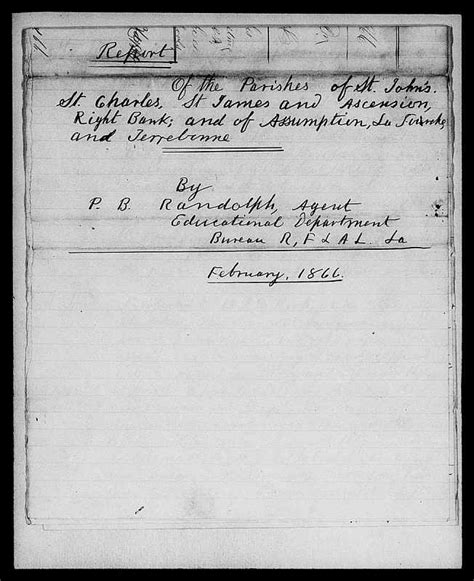 Report
Of the Parishes of St. John's.
St. Charles, St James and Ascension,
Right Bank; and of Assumption, La Fourche,
and Terrebonne
By
P. B. Randolph, Agent
Educational Department
Bureau R, F & A L. La
February, 1866.